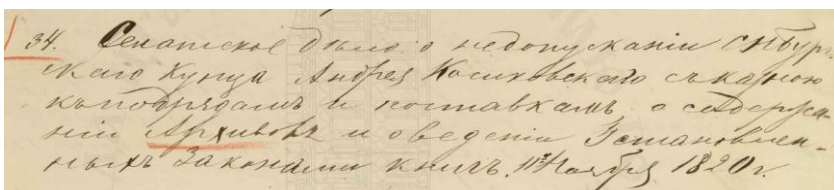 34. Сенатское дѣло о недопусканіи СПбург-
скаго купца Андрея Косиковскаго съ казною
къ подрядамъ и поставкамъ, о содержа-
ніи Архивовъ и о веденіи Установлен-
ныхъ Законами книгъ. 11 Ноября 1820 г.